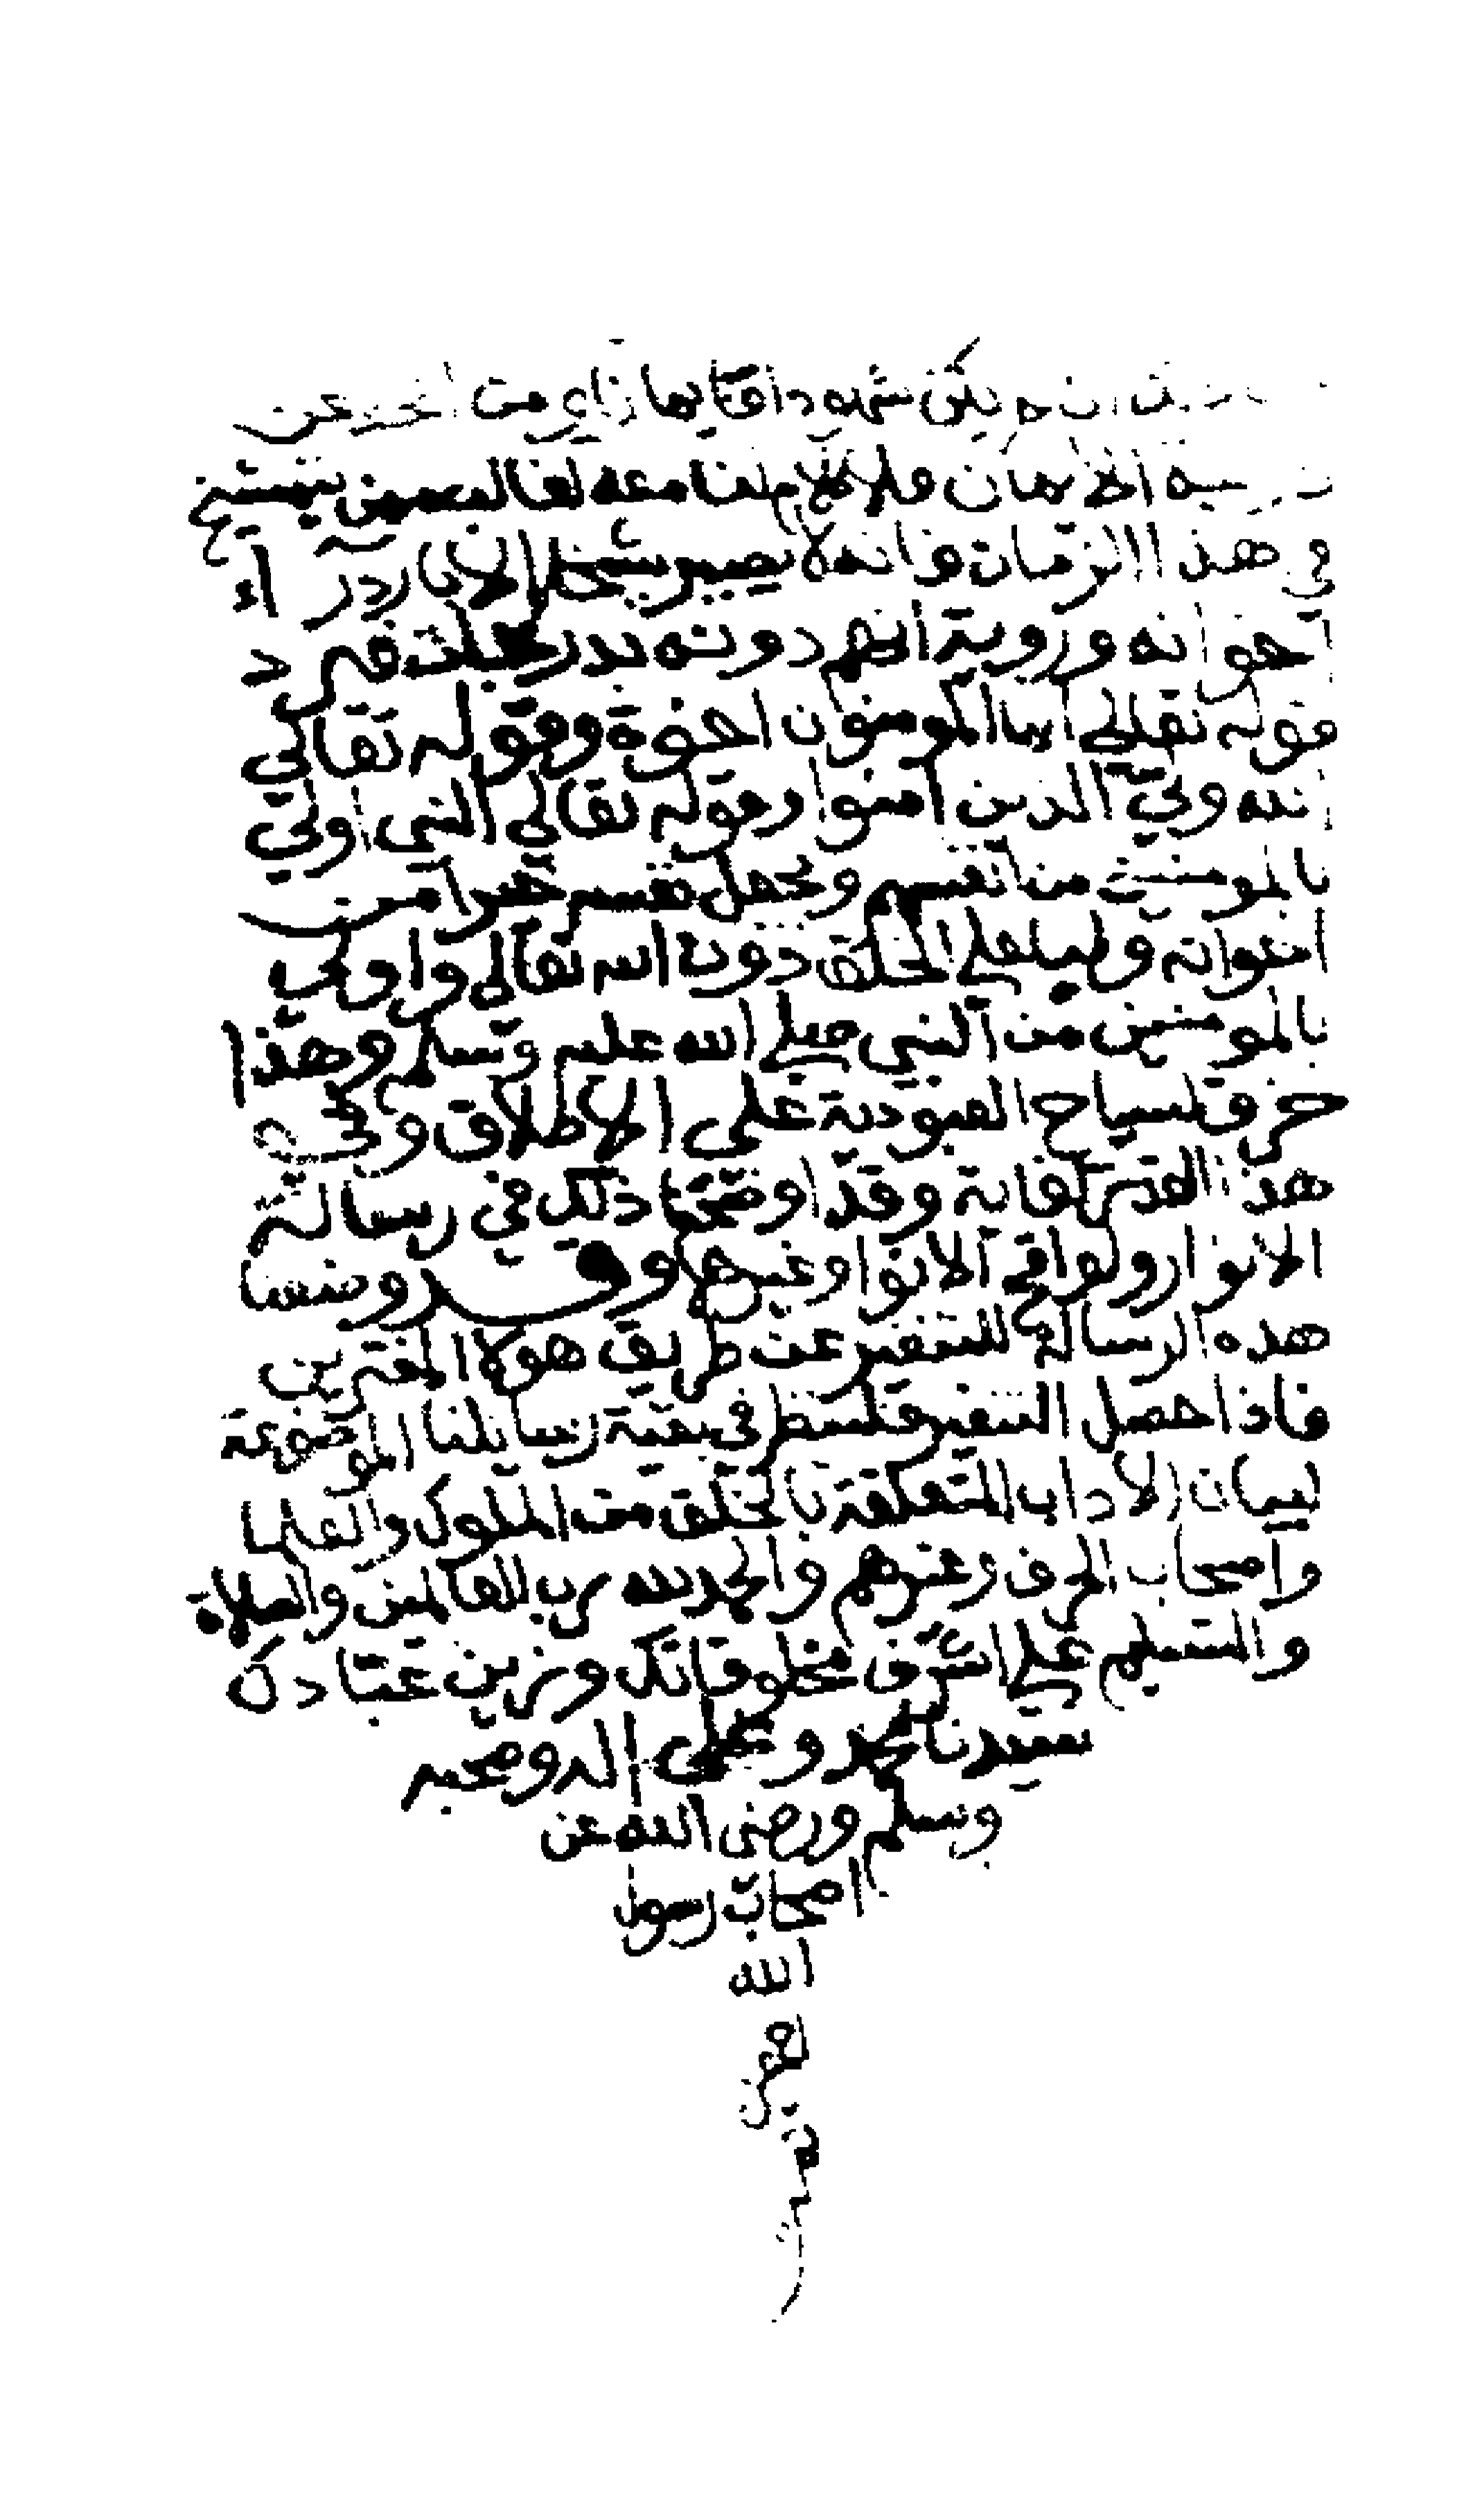 يكن ثم دافا بها زاع من
الا مان فلو لاعلمنا معه لقال نحن بمشيخ
في هذا الزمان وانه لا يصير شيخا الا ان راى
اخوانه ورويته انهم دونه بدرجات فتر د
قوله تعالى انما المومنون اخوة وقوله تعالى
الله ولي الذين امنوا وقوله تعالى النبي اولى
بالمومنين من انفسهم وجعل نفسه خيرا من
اخوانه وليا على الخلق دون الله تعالى واولى
بالمومنين من النبي صلى الله عليه وسلم وهذا
خرق لسياج العبودية على الاطلاق وفي
هذا القدر كفاية وقد اوضحنا ذلك في رسالة
الانوار ولواقح الانوار وغيرها وقد وضعنا
هذه الرسالة للتنفير عن طريق هولا المغترين
فاذا حصل التنفير فلينظر في بقية رسايلنا الموضوعة
لبيان الاداب المتعلقة بالخلق من الملوك والعلما
واصحاب الحرف وغيرهم والحمد لله رب العالمين والصلاة
والتسليم على اشرف مخلوقاتك وزين عبادك
سيدنا محمد وعلى اله وصحبه
وسلم ورضى الله عن
اصحاب رسول
الله